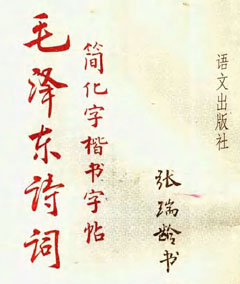 毛泽东诗词
简化字楷书字帖
张瑞龄书
语文出版社